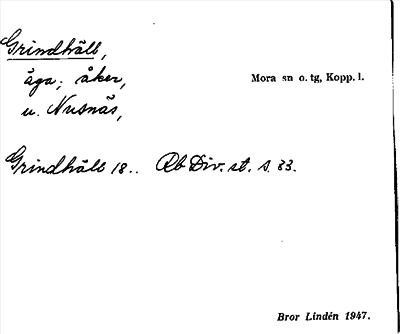 Grindhäll,
äga; åker,
Mora sn o. tg, Kopp. l.
u. Nusnäs,
Grindhäll 18.. Rb Div. st. s. 83.
Bror Lindén 1947.